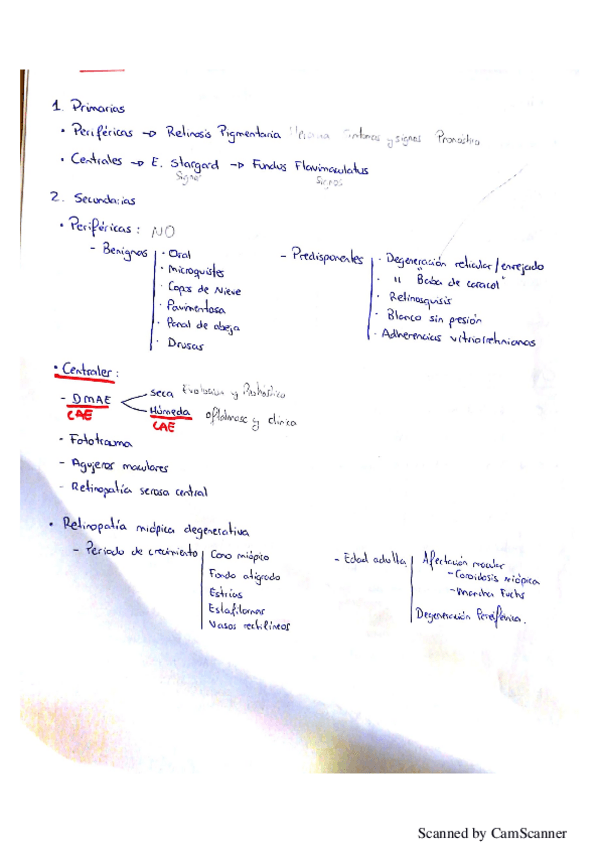 1. Primarias
• Periféricas → Retinosis Pigmentaria Síntomas y signos Pronóstico
• Centrales → E. Stargard → Fundus Flavimaculatus
Signos
Signos
2. Secundarias
• Periféricas: NO
- Benignos
· Oral
· Microquistes
· Cops de Nieve
· Pavimentosa
· Panal de abeja
· Drusas
- Predisponentes
· Degeneración reticular/enrejado
· " Baba de caracol"
· Retinosquisis
· Blanco sin presión
· Adherencias vitriorretinianas
• Centrales:
- DMAE
CAE
seca Evolución y Pronóstico
Húmeda oftalmosc y clínica
CAE
- Fototrauma
- Agujeros maculares
- Retinopatía serosa central
• Retinopatía miópica degenerativa
- Periodo de crecimiento
Cono miópico
Fondo atigrado
Estrías
Estafilomas
Vasos rectilíneos
- Edad adulta
Afectación macular
- Coroidosis miópica
- Mancha Fuchs
Degeneración Periférica.
Scanned by CamScanner